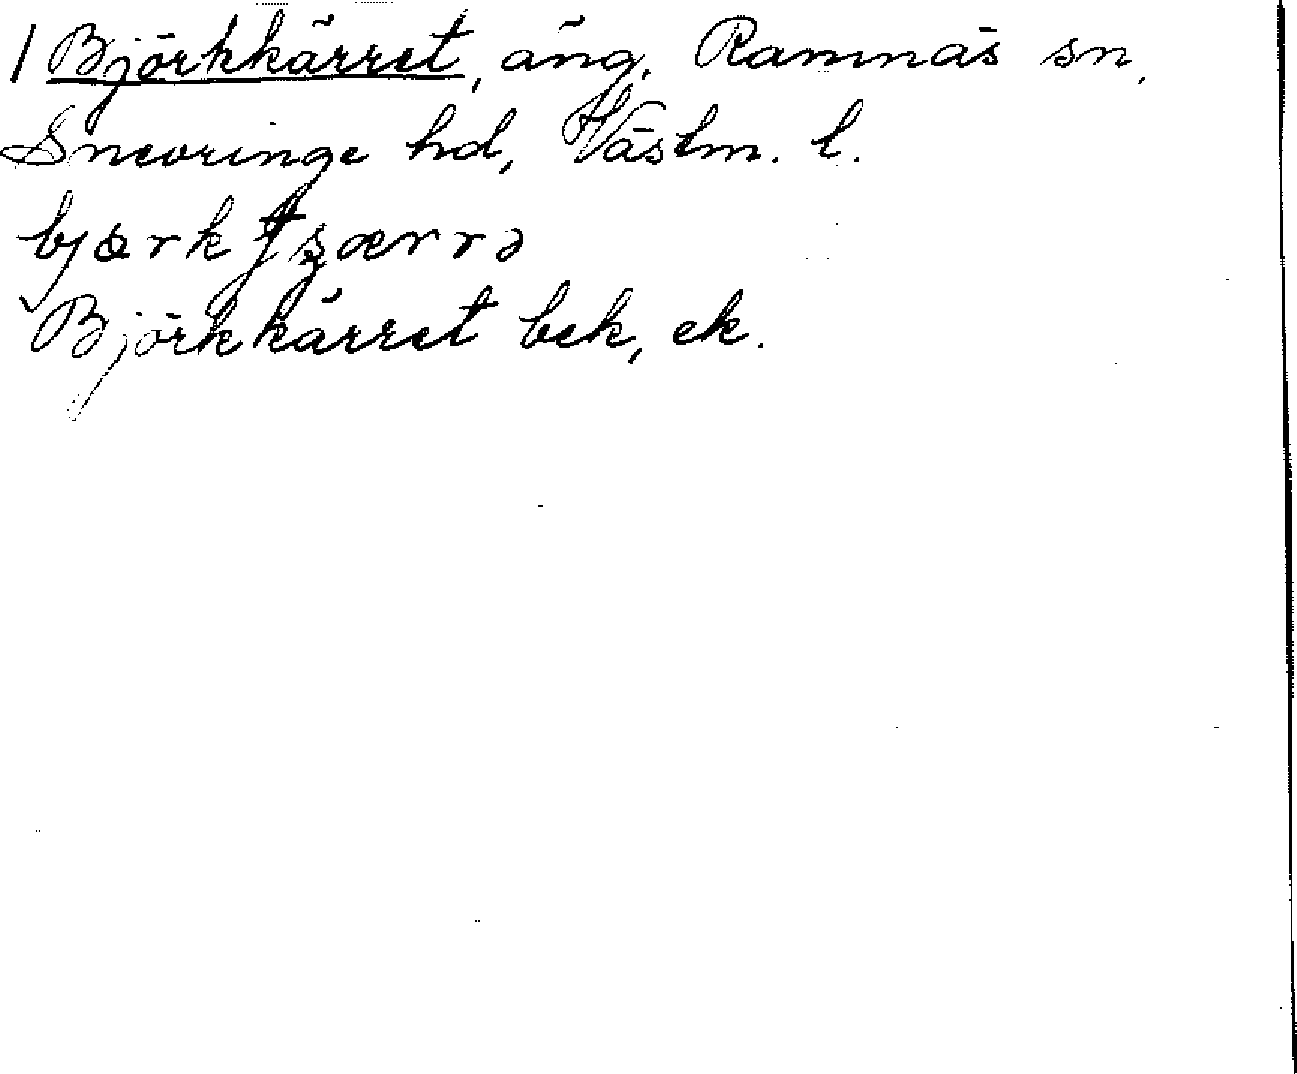 / Björkkärret, äng. Ramnäs sn,
Snevringe hd, Västm. l.
Björkkärret bek, ek.